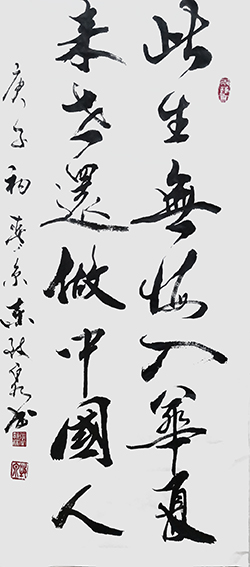 此生無悔入華夏
来世還做中國人
庚子初春京東